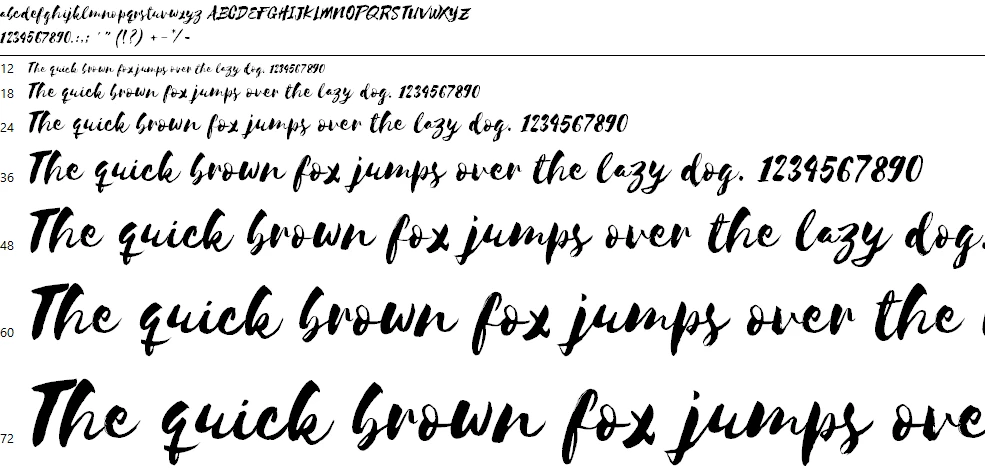 abcdefghijklmnopqrstuvwxyz ABCDEFGHIJKLMNOPQRSTUVWXYZ
1234567890.:,; ' " (!?) +-*/-
12 The quick brown fox jumps over the lazy dog. 1234567890
18 The quick brown fox jumps over the lazy dog. 1234567890
24 The quick brown fox jumps over the lazy dog. 1234567890
36 The quick brown fox jumps over the lazy dog. 1234567890
48 The quick brown fox jumps over the lazy dog.
60 The quick brown fox jumps over the
72 The quick brown fox jumps ove